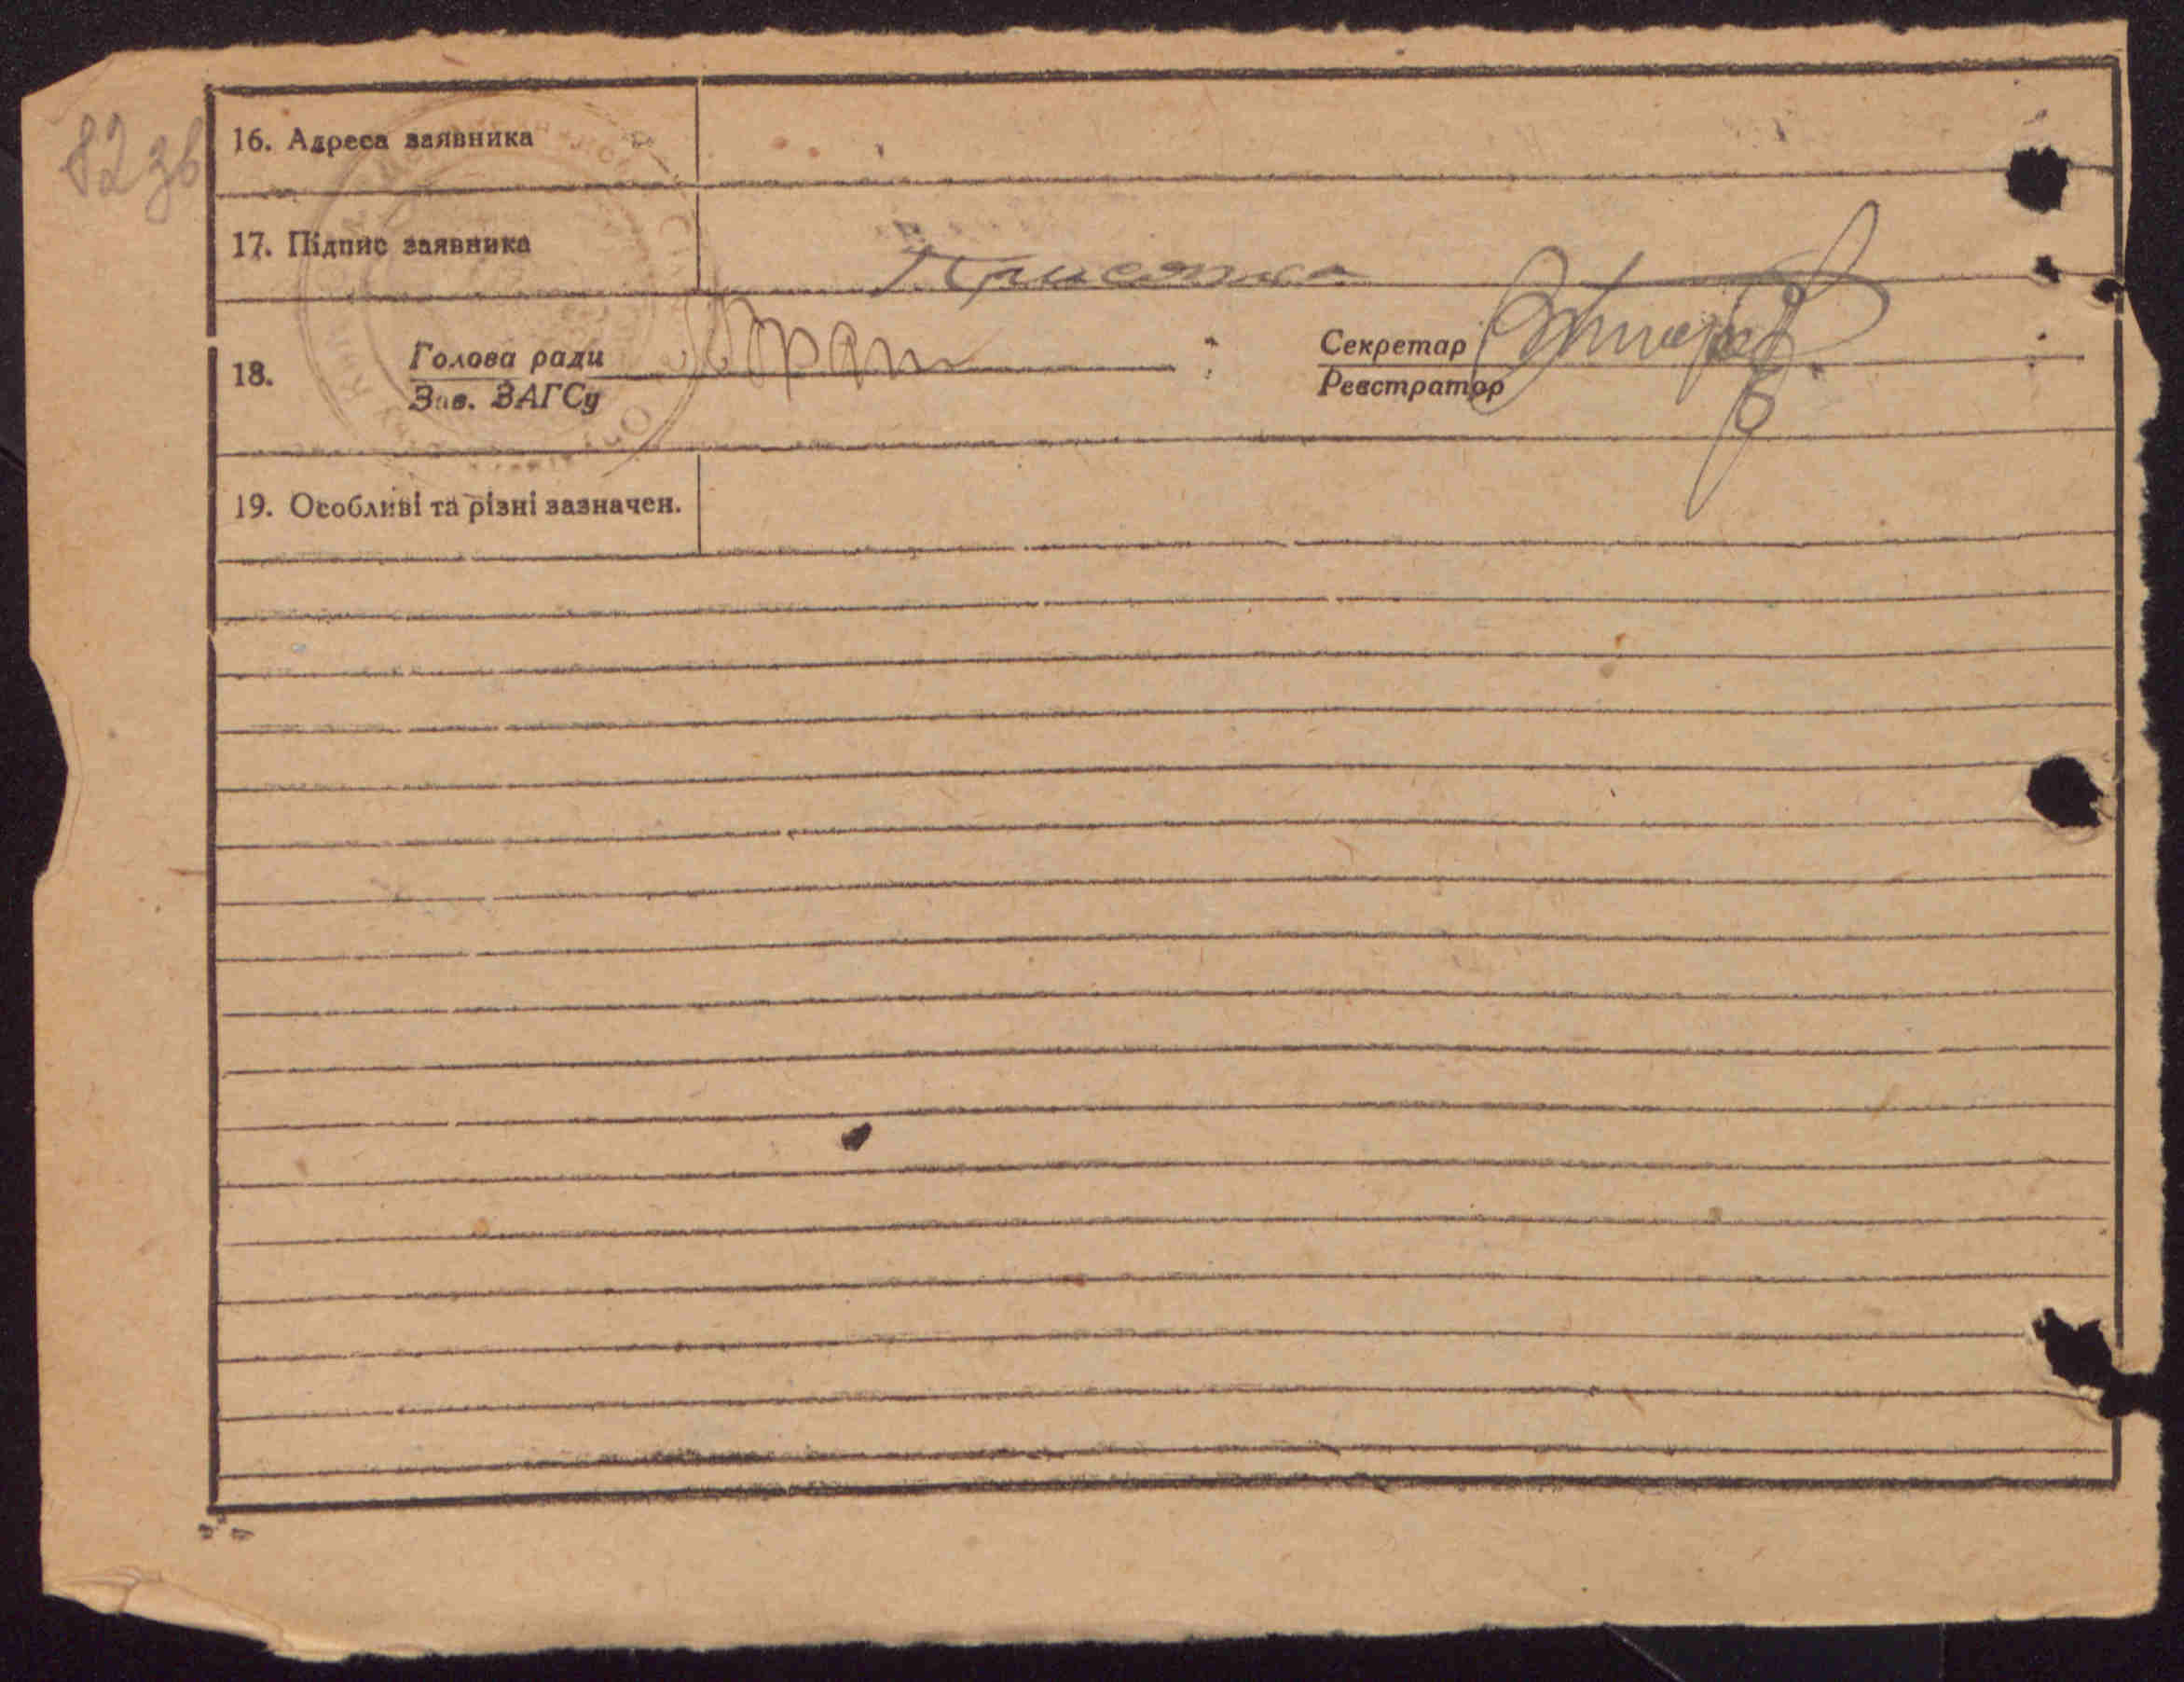 82 зв
16. Адреса заявника
17. Підпис заявника Присяжна
18. Голова ради Секретар
Зав. ЗАГСу Реєстратор
19. Особливі та різні зазначен.